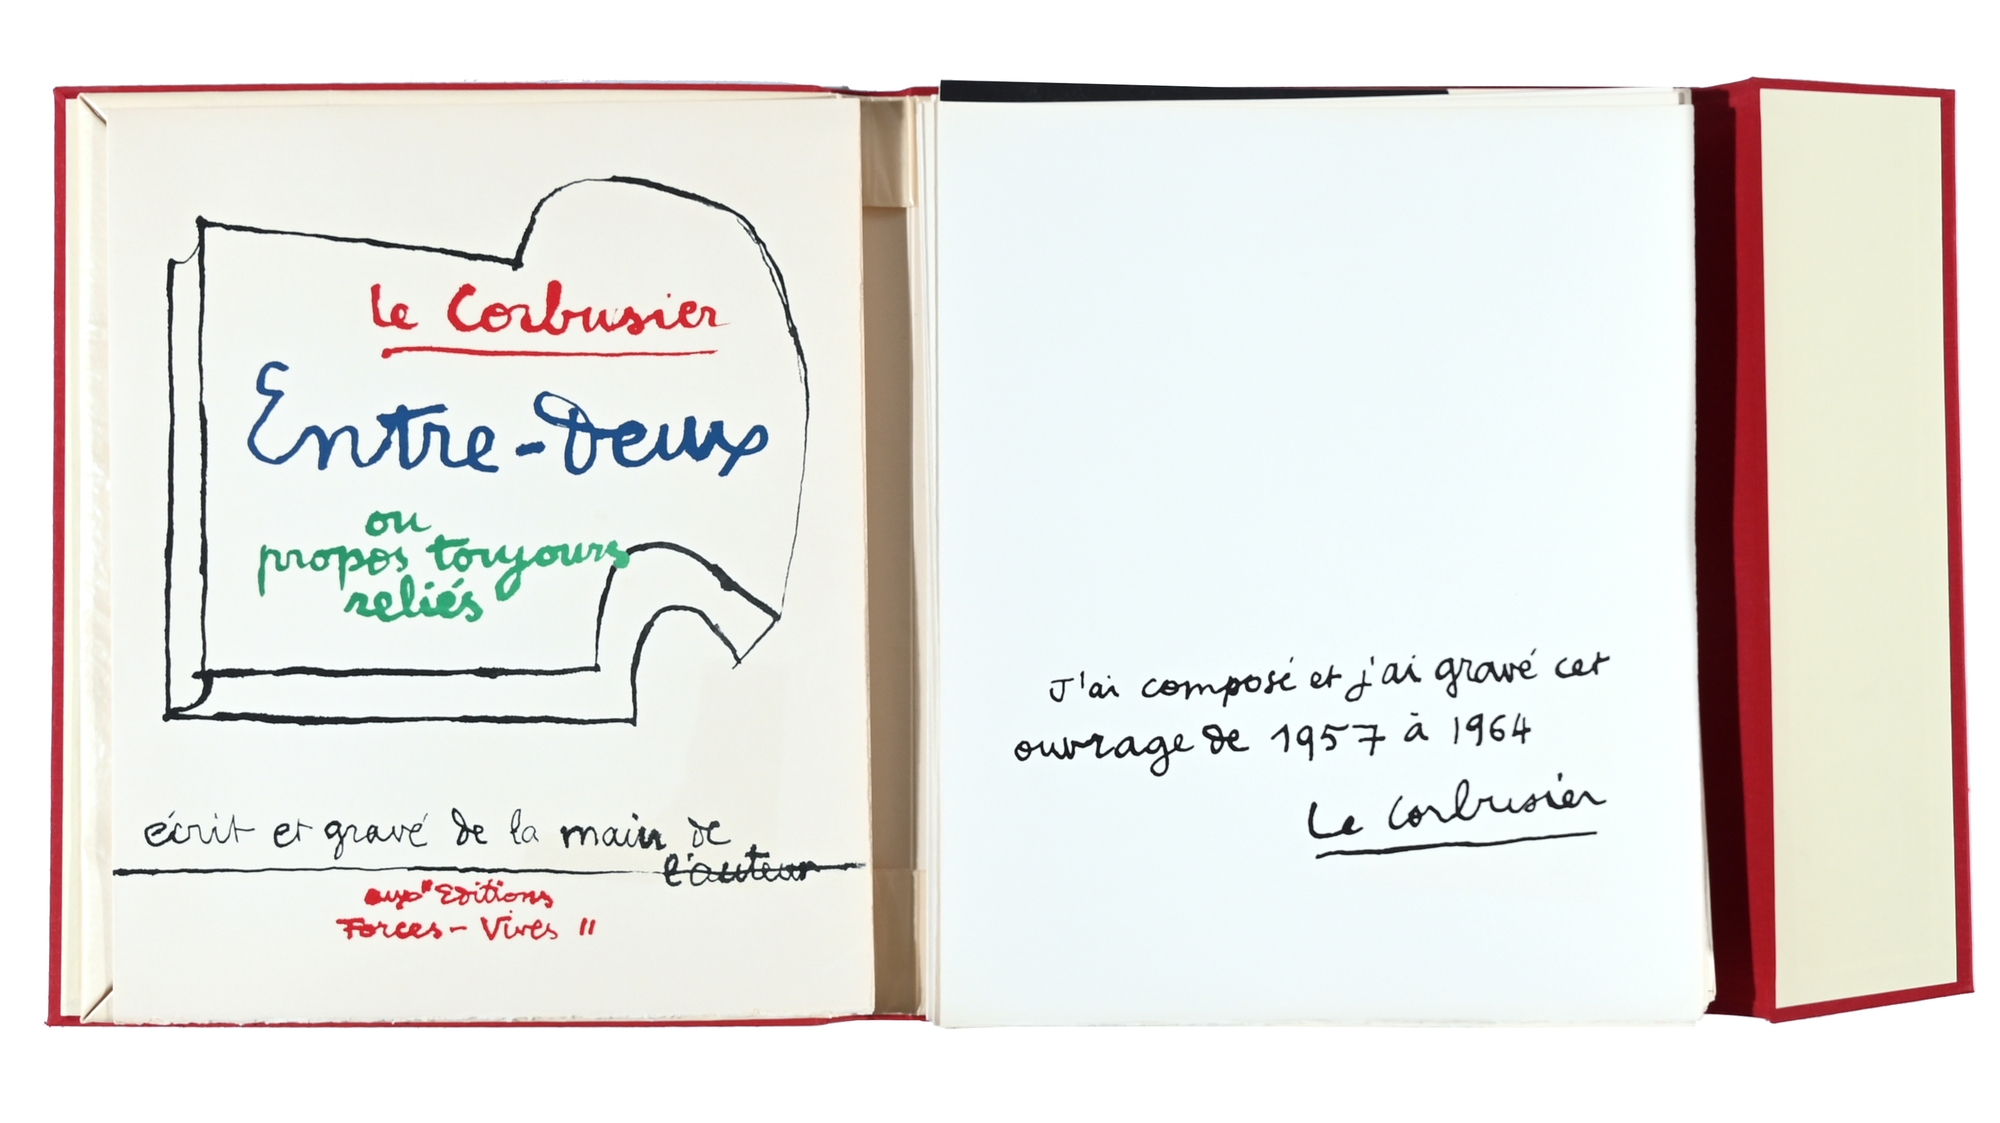 Le Corbusier
Entre-Deux
ou
propos toujours
reliés
écrit et gravé de la main de
l'auteur
aux "Editions
Forces-Vives "
J'ai composé et j'ai gravé cet
ouvrage de 1957 à 1964
Le Corbusier